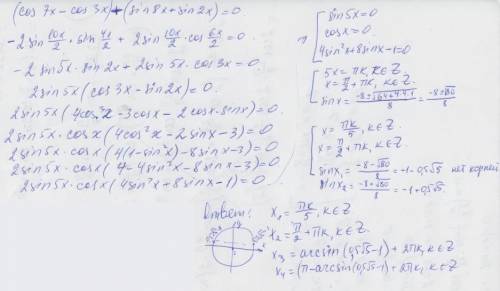 (cos 7x - cos 3x) + (sin 8x + sin 2x) = 0.
-2 sin 10x/2 · sin 4x/2 + 2 sin 10x/2 · cos 6x/2 = 0
-2 sin 5x · sin 2x + 2 sin 5x · cos 3x = 0.
2 sin 5x (cos 3x - sin 2x) = 0.
2 sin 5x (4cos³x - 3cos x - 2cos x · sin x) = 0
2 sin 5x · cos x (4cos²x - 2 sin x - 3) = 0
2 sin 5x · cos x (4(1 - sin²x) - 8 sin x - 3) = 0
2 sin 5x · cos x (4 - 4 sin²x - 8 sin x - 3) = 0
2 sin 5x · cos x (4 sin²x + 8 sin x - 1) = 0
sin 5x = 0
cos x = 0
4 sin²x + 8 sin x - 1 = 0
5x = πk, k∈Z
x = π/2 + πk, k∈Z
sin x = (-8 ± √(64 + 4·4·1))/8 = (-8 ± √80)/8
x = πk/5, k∈Z.
x = π/2 + πk, k∈Z.
sin x₁ = (-8 - √80)/8 = -1 - 0,5√5 нет корней
sin x₂ = (-8 + √80)/8 = -1 + 0,5√5.
Ответ: x₁ = πk/5, k∈Z
x₂ = π/2 + πk, k∈Z.
x₃ = arcsin (0,5√5 - 1) + 2πk, k∈Z
x₄ = (π - arcsin (0,5√5 - 1) + 2πk, k∈Z